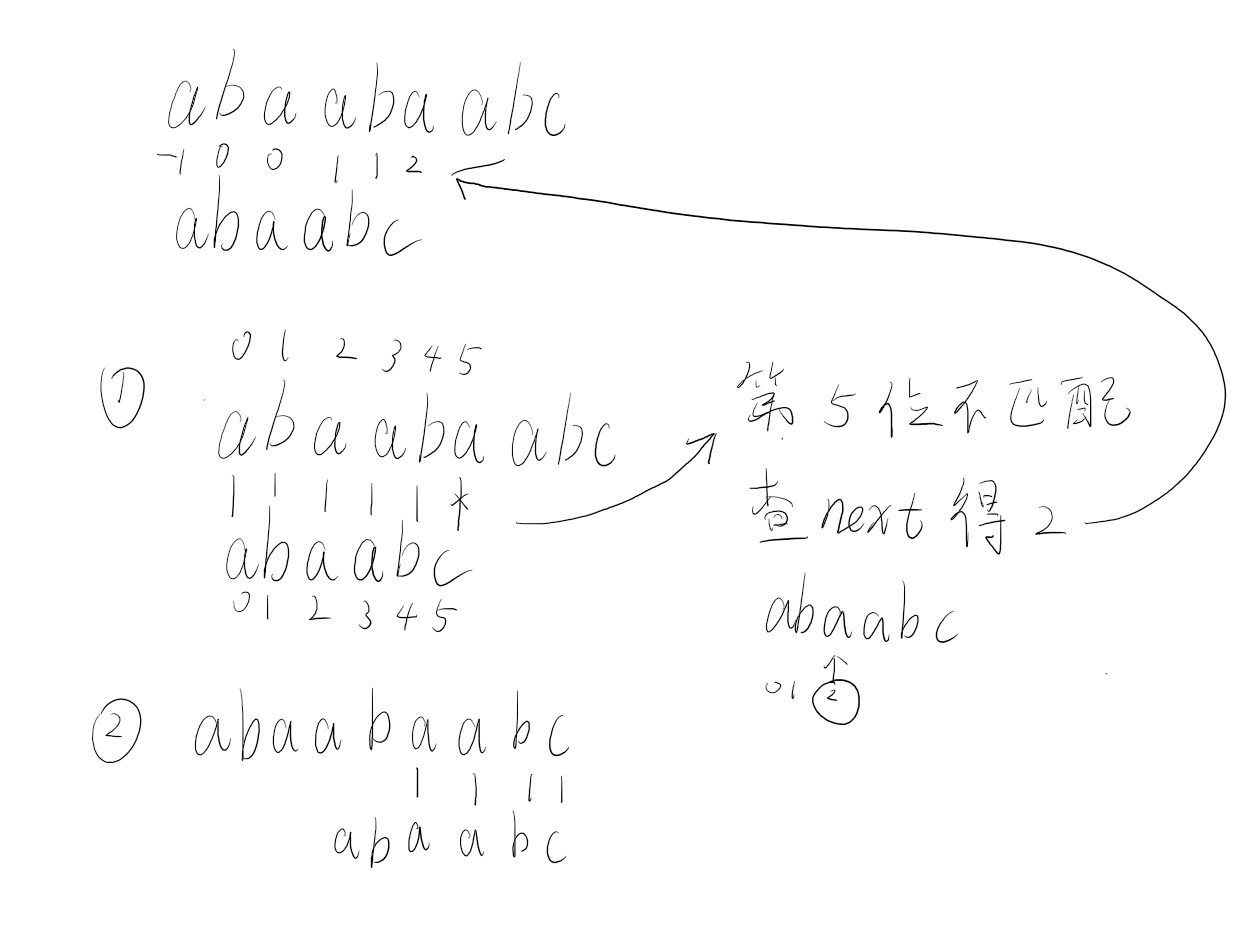 abaabaabc
-1 0 0 1 1 2
abaabc
①
0 1 2 3 4 5
abaabaabc
abaabc
0 1 2 3 4 5
第5位不匹配
查next得2
abaabc
0 1 2
②
abaabaabc
abaabc